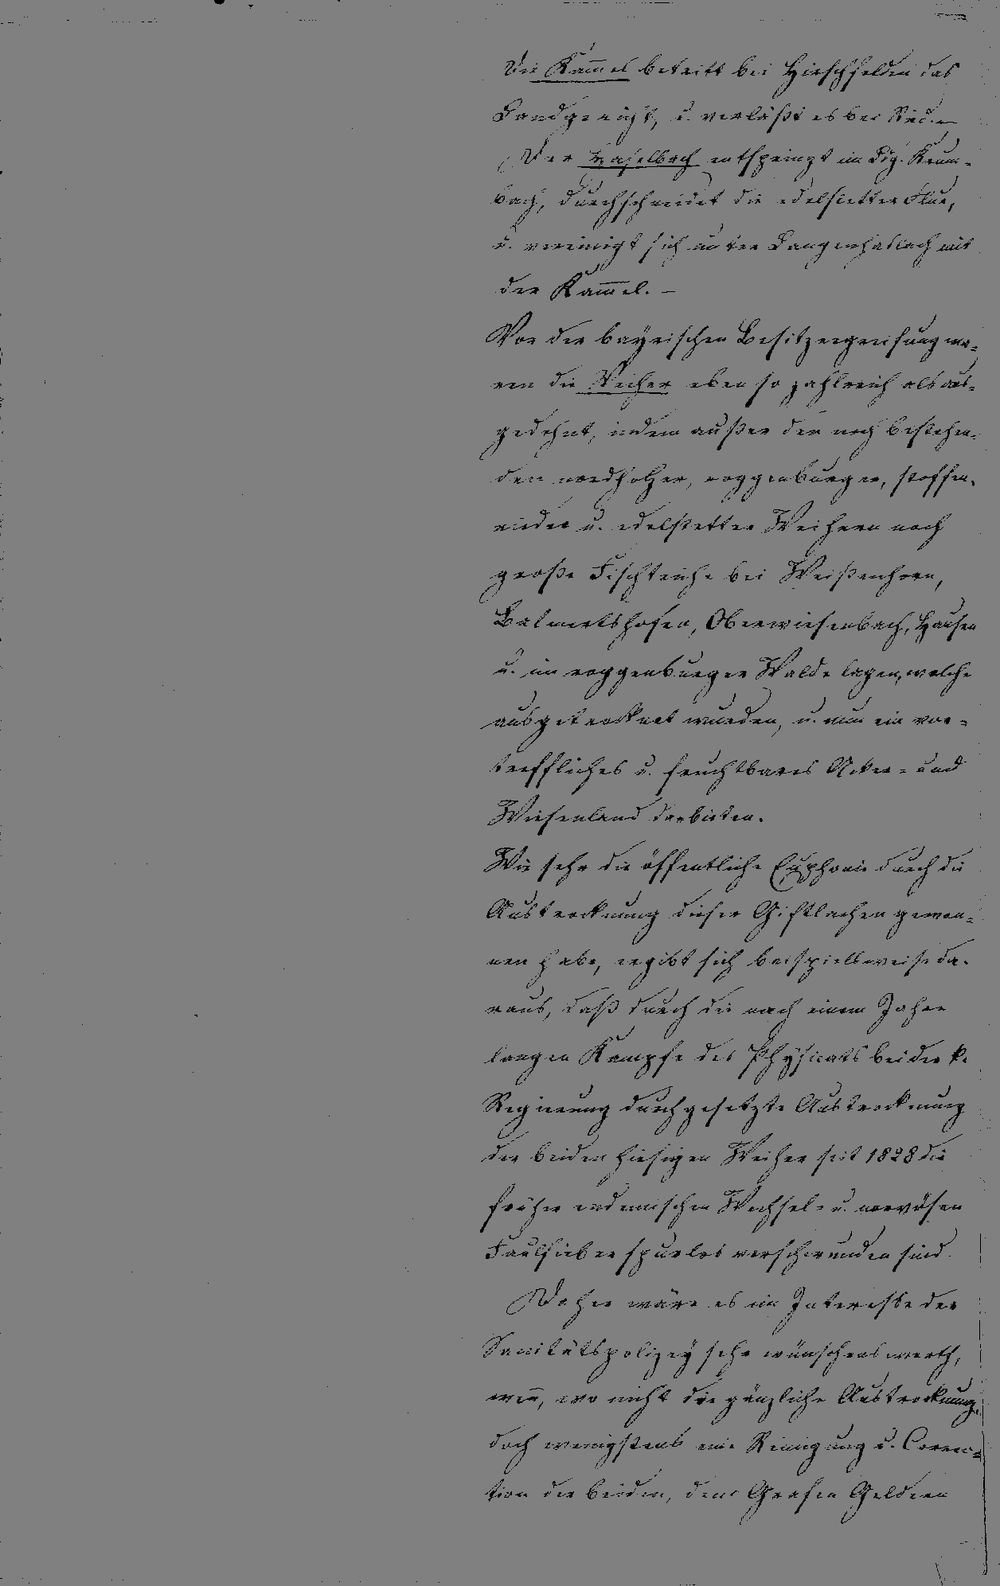 Die Kam̅el betritt bei Hirschfelden das
Landgericht, u. verläßt es bei Ried. –
Der Haselbach entspringt im Ldg. Krum-
bach, durchschneidet die edelstetter Flur,
u. vereinigt sich unter Langenhaslach mit
der Kam̅el. –
Vor der bayrischen Besitzergreifung wa-
ren die Weiher eben so zahlreich als aus-
gedehnt, indem außer den noch bestehen-
den nordholzer, roggenburger, stoffen-
rieder u. edelstetter Weihern noch
große Fischteiche bei Weißenhorn,
Balmertshofen, Oberwiesenbach, Hausen
u. im roggenburger Walde lagen, welche
ausgetrocknet wurden, u. nun ein vor-
treffliches u. fruchtbares Acker- und
Wiesenland darbieten.
Wie sehr die öffentliche Euphorie durch die
Austrocknung dieser Giftlachen gewon-
nen habe, ergibt sich beispielsweise da-
raus, daß durch die nach einem Jahre
langen Kampfe des Physicats bei der k.
Regierung durchgesetzte Austrocknung
der beiden hiesigen Weiher seit 1828 die
früher endemischen Wechsel- u. nervösen
Faulfieber spurlos verschwunden sind.
Daher wäre es im Interesse der
Sanitätspolizey sehr wünschenswerth,
wen̅, wo nicht die gänzliche Austrocknung,
doch wenigstens eine Reinigung u. Correc-
tion der beiden, dem Grafen Geldern